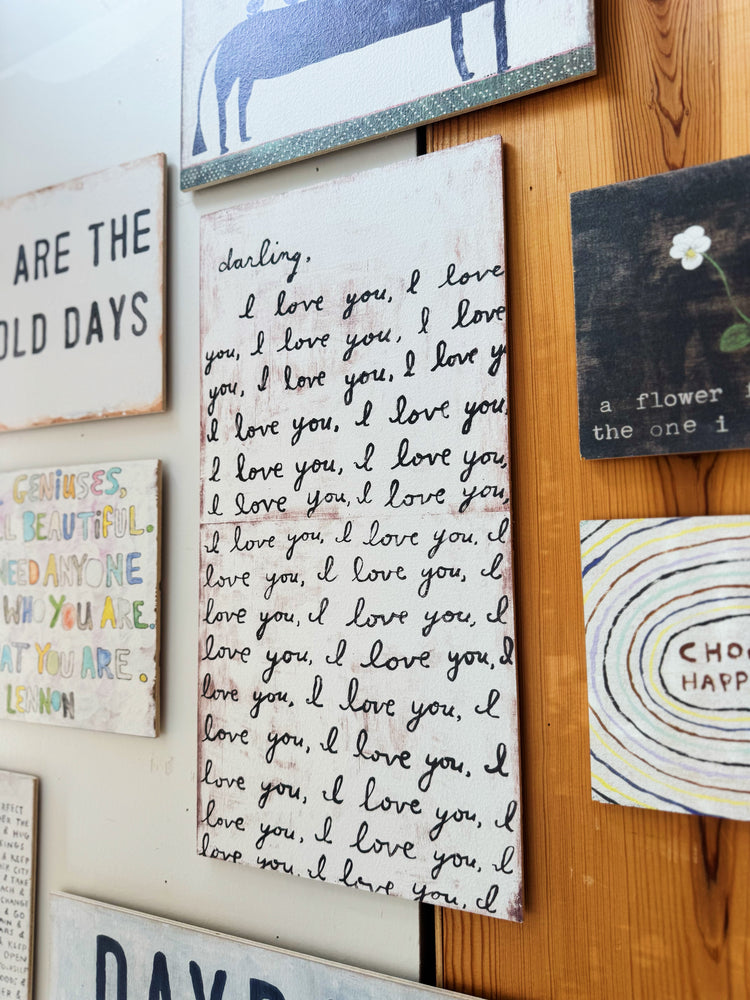 ARE THE
OLD DAYS
darling,
I love you, I love
you, I love you, I love
you, I love you, I love y
I love you, I love you,
I love you, I love you,
I love you, I love you,
I love you, I love you, I
love you, I love you, I
love you, I love you, I
love you, I love you, I
love you, I love you, I
love you, I love you, I
love you, I love you, I
love you, I love you, I
love you, I love you, I
a flower
the one i
GENiUSES,
L BEAUTiFUL.
NEED ANYONE
WHO YOU ARE.
AT YOU ARE.
LENNON
CHOO
HAPP
RFECT
THE
& HUG
KINGS
& KEEP
CITY
& TAKE
EACH &
CHANGE
& GO
& KEEP
OPEN
DAYD